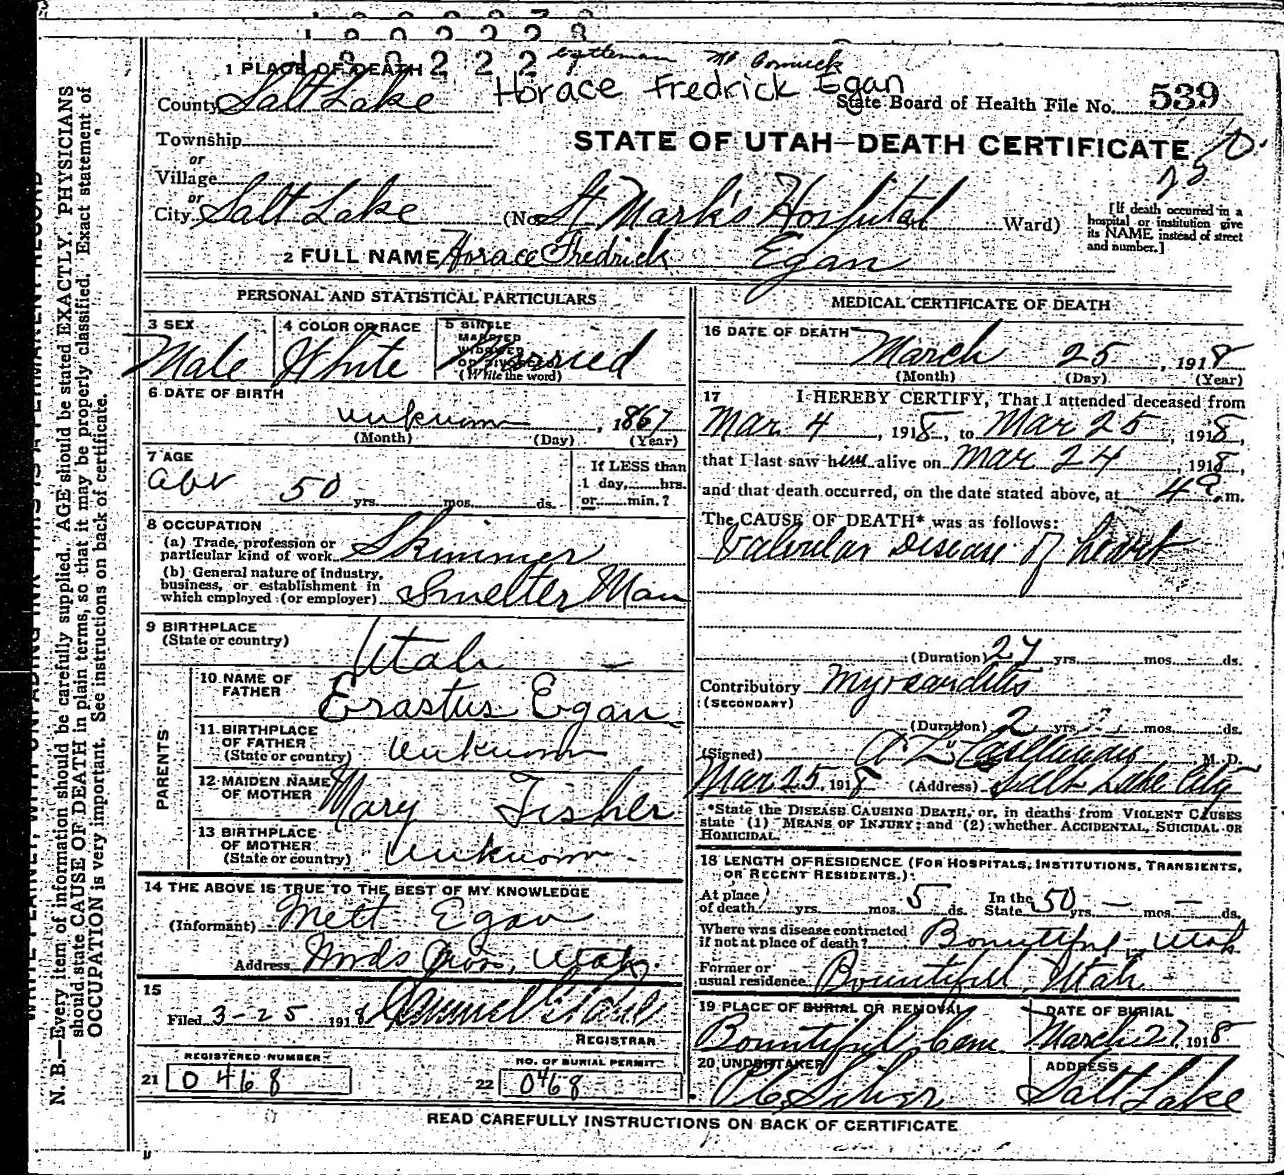 1 PLACE OF DEATH
Horace Fredrick Egan
County Salt Lake
State Board of Health File No. 539
Township
STATE OF UTAH—DEATH CERTIFICATE
or
Village
or
City Salt Lake (No. St Mark's Hospital Ward)
[If death occurred in a hospital or institution give its NAME, instead of street and number.]
2 FULL NAME Horace Fredrick Egan
PERSONAL AND STATISTICAL PARTICULARS
3 SEX
Male
4 COLOR OR RACE
White
5 SINGLE
MARRIED
WIDOWED
OR DIVORCED
(Write the word)
Married
6 DATE OF BIRTH
unknown, 1867
(Month) (Day) (Year)
7 AGE
abt 50 yrs. mos. ds.
If LESS than
1 day, hrs.
or min.?
8 OCCUPATION
(a) Trade, profession or
particular kind of work Skimmer
(b) General nature of industry,
business, or establishment in
which employed (or employer) Smelter Man
9 BIRTHPLACE
(State or country)
Utah
PARENTS
10 NAME OF
FATHER
Erastus Egan
11 BIRTHPLACE
OF FATHER
(State or country) unknown
12 MAIDEN NAME
OF MOTHER
Mary Fisher
13 BIRTHPLACE
OF MOTHER
(State or country) unknown
14 THE ABOVE IS TRUE TO THE BEST OF MY KNOWLEDGE
(Informant) Mett Egan
Address Woods Cross, Utah
15
Filed 3-25 1918
REGISTRAR
REGISTERED NUMBER
21 0468
NO. OF BURIAL PERMIT
22 0468
MEDICAL CERTIFICATE OF DEATH
16 DATE OF DEATH
March 25, 1918
(Month) (Day) (Year)
17 I HEREBY CERTIFY, That I attended deceased from
Mar. 4, 1918, to Mar 25, 1918,
that I last saw him alive on Mar 24, 1918,
and that death occurred, on the date stated above, at 4 a m.
The CAUSE OF DEATH* was as follows:
Valvular Disease of heart
(Duration) 27 yrs. mos. ds.
Contributory Myocarditis
(SECONDARY)
(Duration) 2 yrs. mos. ds.
(Signed) M. D.
Mar 25, 1918 (Address) Salt Lake City
*State the DISEASE CAUSING DEATH, or, in deaths from VIOLENT CAUSES
state (1) MEANS OF INJURY; and (2) whether ACCIDENTAL, SUICIDAL OR
HOMICIDAL.
18 LENGTH OF RESIDENCE (FOR HOSPITALS, INSTITUTIONS, TRANSIENTS,
OR RECENT RESIDENTS.)
At place
of death? yrs. mos. 5 ds.
In the
State 50 yrs. — mos. — ds.
Where was disease contracted
if not at place of death? Bountiful, Utah
Former or
usual residence Bountiful, Utah
19 PLACE OF BURIAL OR REMOVAL
Bountiful Cem.
DATE OF BURIAL
March 27, 1918
20 UNDERTAKER
ADDRESS
Salt Lake
READ CAREFULLY INSTRUCTIONS ON BACK OF CERTIFICATE
N. B.—Every item of information should be carefully supplied. AGE should be stated EXACTLY. PHYSICIANS
should state CAUSE OF DEATH in plain terms, so that it may be properly classified. Exact statement of
OCCUPATION is very important. See instructions on back of certificate.